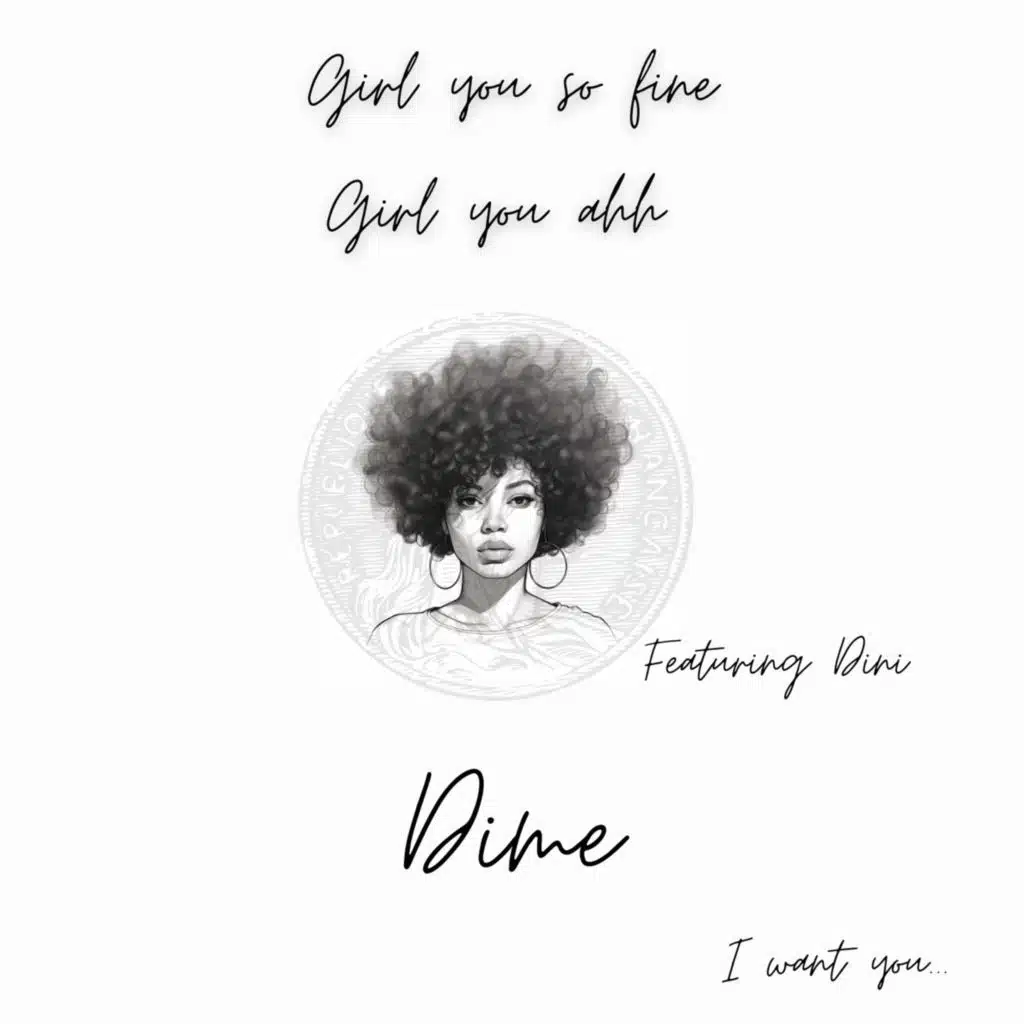 Girl you so fine
Girl you ahh
Featuring Dini
Dime
I want you...